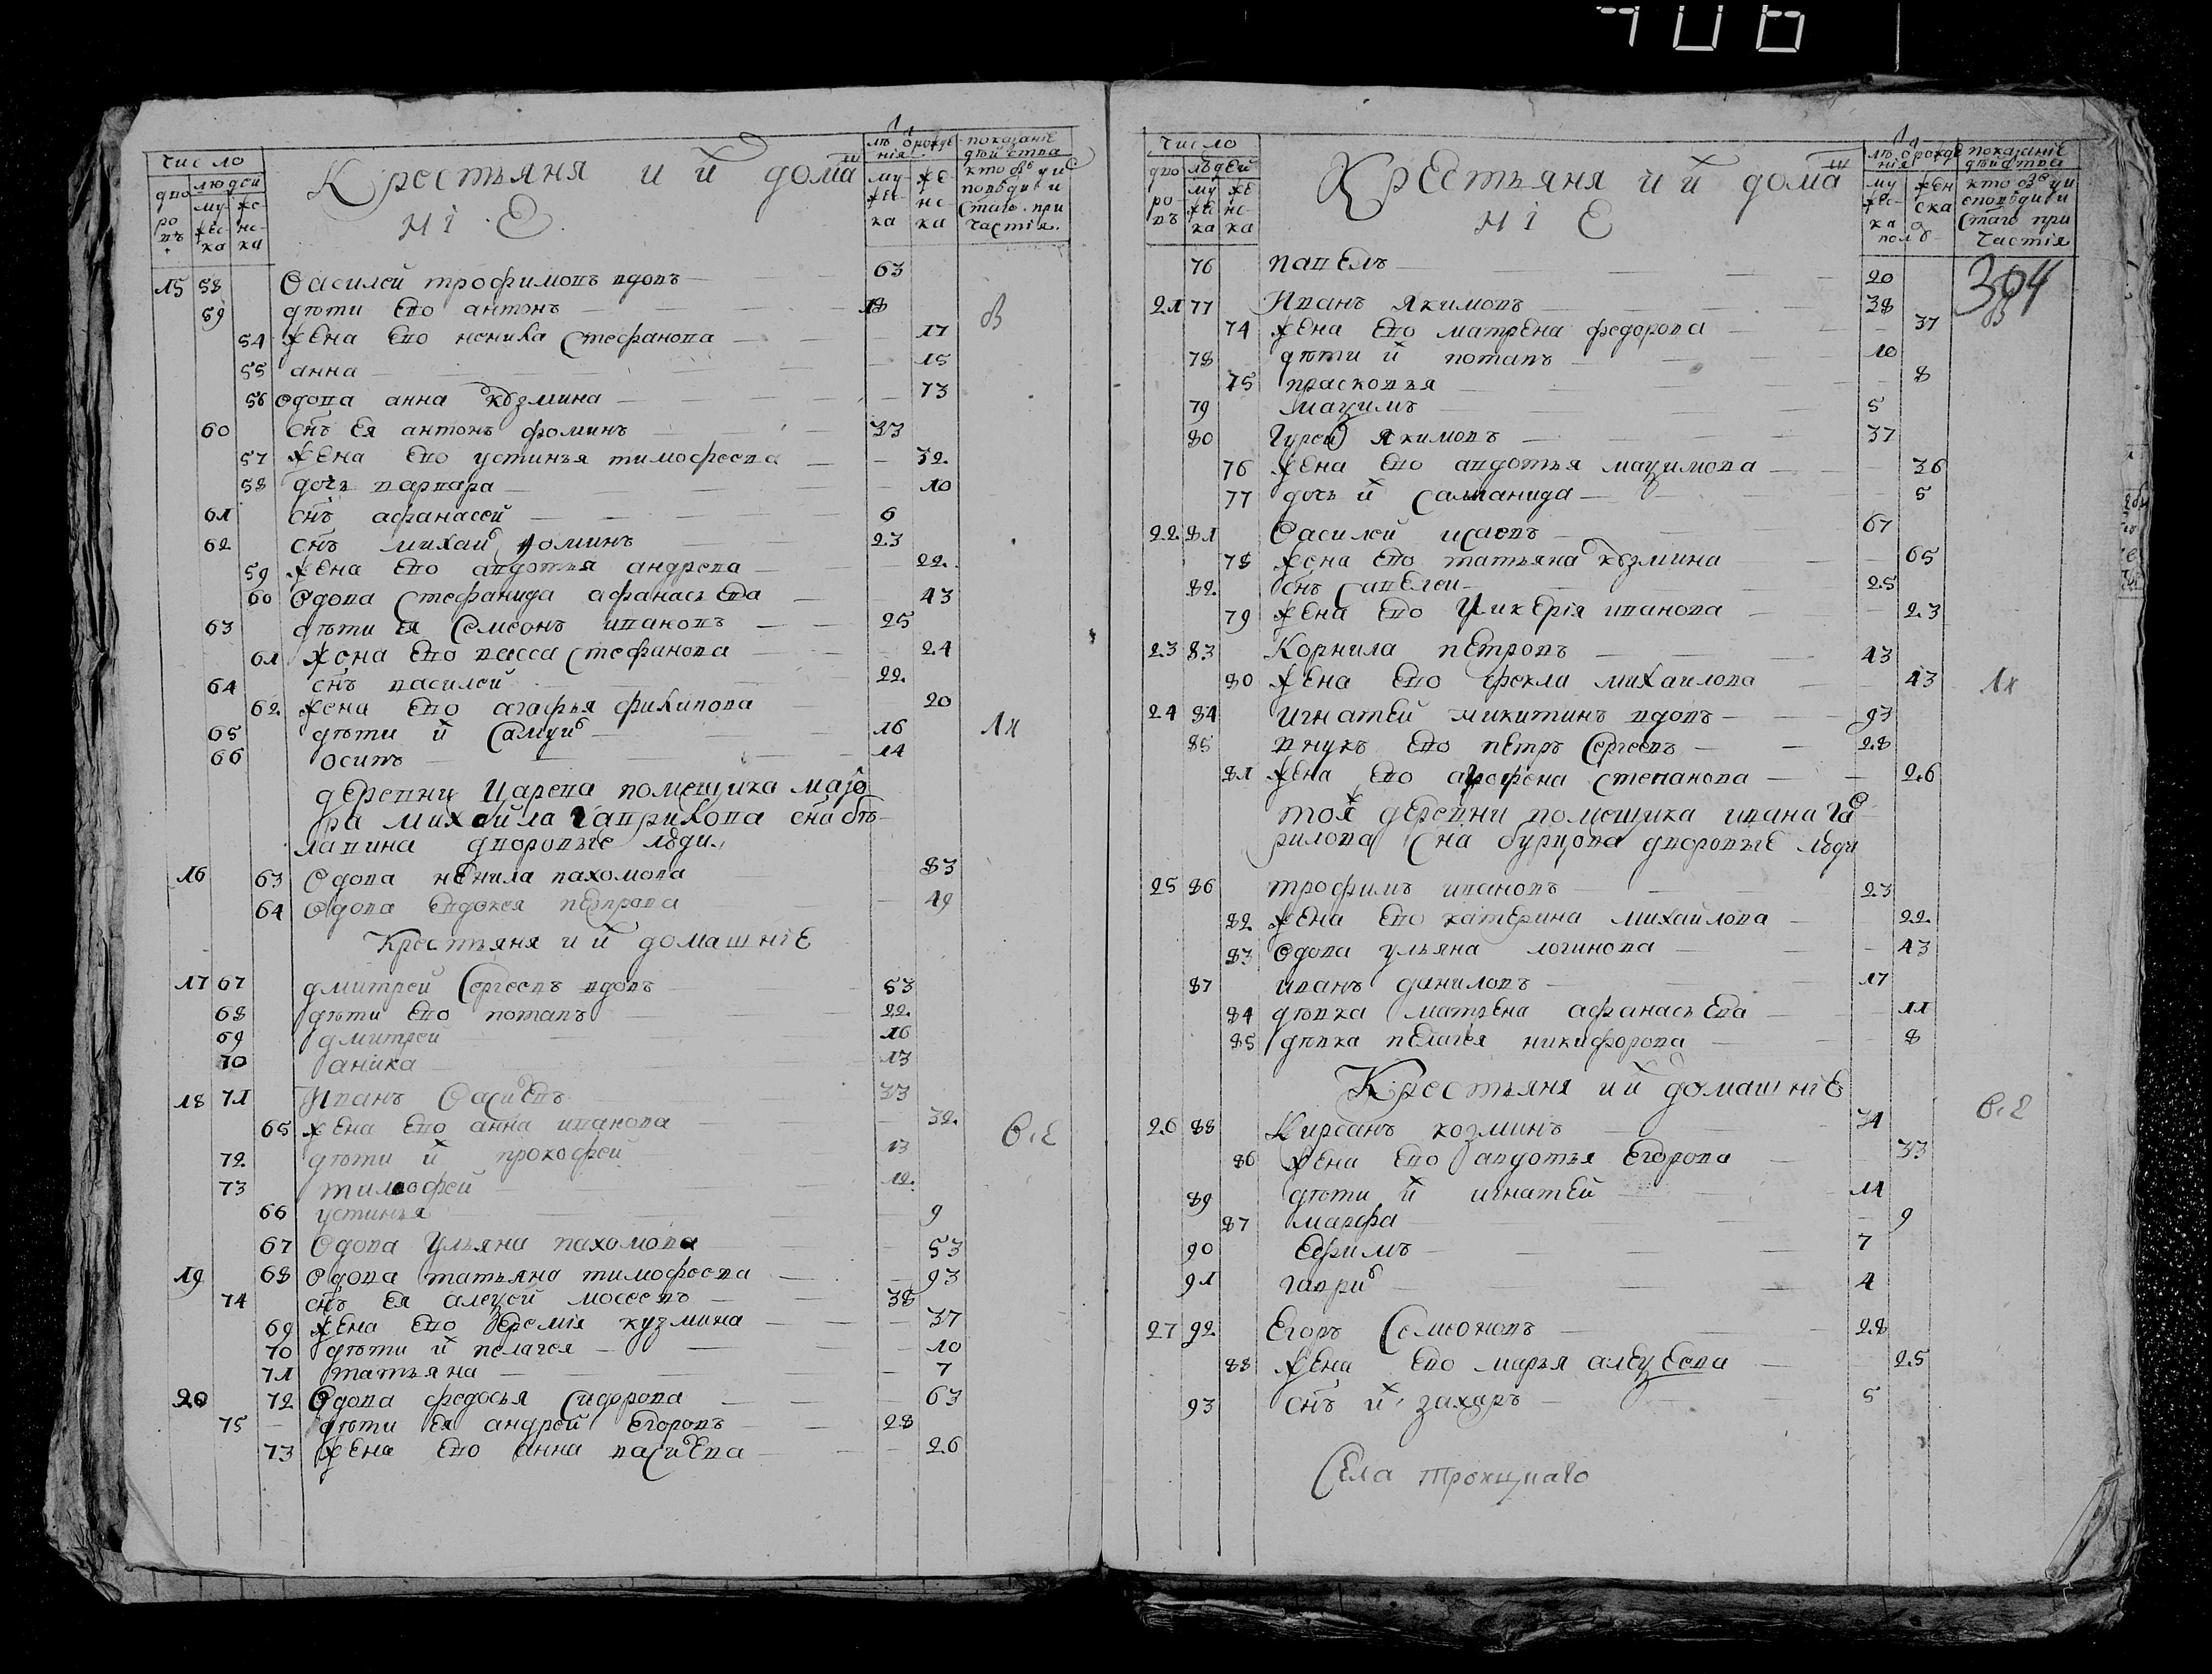 406
Число
дворовъ
людей
мужеска
женска
Крестьяня и ихъ домашніе
лѣта ѿ рожденія
мужеска
женска
показаніе дѣйства кто былъ у исповѣди и святаго причастія
15 58 Василей трофимовъ вдовъ 63
59 дѣти ево антонъ 18
В
54 жена ево неонила Стефанова 17
55 анна 15
56 вдова анна кѹзмина 73
60 снъ ея антонъ фоминъ 33
57 жена ево устинья тимофеева 32
58 дочь варвара 10
61 снъ афанасей 6
62 снъ михайл фоминъ 23
59 жена ево авдотья андрева 22
60 вдова Стефанида афанасьева 43
63 дѣти ея Семеонъ ивановъ 25
61 жена ево васса Стефанова 24
64 снъ василей 22
62 жена ево агафья филипова 20
65 дѣти ихъ Самуил 16
1х
66 осипъ 14
деревни Царева помещика маіо
ра михайла Гаврилова сна бѣ
лавина дворовые люди
16 63 вдова ненила пахомова 83
64 вдова евдокея петрова 49
Крестьяня и ихъ домашніе
17 67 дмитрей Сергеевъ вдовъ 53
68 дѣти ево потапъ 22
69 дмитрей 16
70 аника 13
18 71 Иванъ Василевъ 33
65 жена ево анна иванова 32
72 дѣти ихъ прокофей 13
73 тимофей 12
66 устинья 9
67 вдова Ульяна пахомова 53
19 68 вдова татьяна тимофеева 93
74 снъ ея алеѯей мосеевъ 38
69 жена ево кузмина 37
70 дѣти ихъ пелагея 10
71 татьяна 7
20 72 вдова федосья Сидорова 63
75 дѣти ея андрей Егоровъ 28
73 жена ево анна василева 26
Число
дворовъ
людей
мужеска
женска
Крестьяня и ихъ домашніе
лѣта ѿ рожденія
мужеска
женска
полѹ
показаніе дѣйства кто былъ у исповѣди и святаго причастія
304
76 павелъ 20
21 77 Иванъ Якимовъ 38
74 жена ево матрена федорова 37
78 дѣти ихъ потапъ 10
75 прасковья 8
79 маѯимъ 5
80 Гурей Якимовъ 37
76 жена ево авдотья маѯимова 36
77 дочь ихъ Саламанида 5
22 81 Василей исаевъ 67
78 жена ево татьяна кѹзмина 65
82 снъ Савелей 25
79 жена ево Гликерія иванова 23
23 83 Корнила петровъ 43
80 жена ево фекла михаилова 43
1х
24 84 игнатей никитинъ вдовъ 93
85 внукъ ево петръ Сергеевъ 28
81 жена ево агрофена степанова 26
тояж деревни помещика ивана Гав
рилова Сна бурцова дворовые люди
25 86 трофимъ ивановъ 23
82 жена ево катерина михайлова 22
83 вдова ульяна логинова 43
87 иванъ даниловъ 17
84 дѣвка матрена афанасьева 11
85 дѣвка пелагея никифорова 8
Крестьяня и ихъ домашніе
26 88 Кирсанъ козминъ 34
86 жена ево авдотья Егорова 33
89 дѣти ихъ игнатей 14
87 марфа 9
90 Ефимъ 7
91 гаврил 4
27 92 Егоръ Семеоновъ 28
88 жена ево марья алеѯеева 25
93 снъ ихъ захаръ 5
Села троицкаго